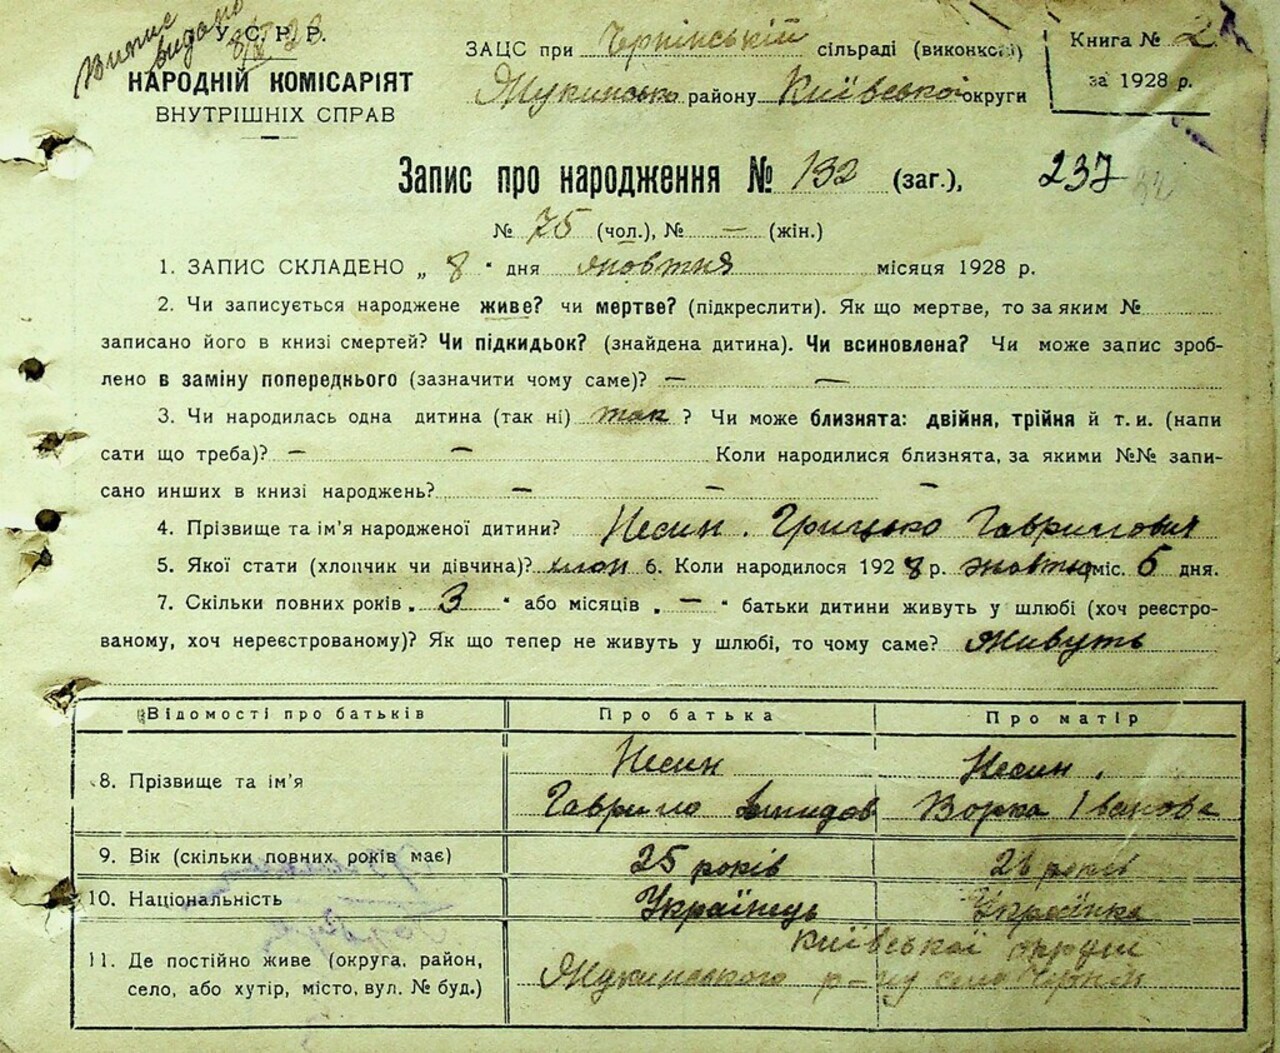 Випис видано
8/X 28
У. С. Р. Р.
НАРОДНІЙ КОМІСАРІЯТ
ВНУТРІШНІХ СПРАВ
ЗАЦС при Чернінській сільраді (виконкомі)
Жукинсько району Київської округи
Книга № 2
за 1928 р.
Запис про народження № 132 (заг.),
237
№ 75 (чол.), № — (жін.)
1. ЗАПИС СКЛАДЕНО „ 8 " дня жовтня місяця 1928 р.
2. Чи записується народжене живе? чи мертве? (підкреслити). Як що мертве, то за яким №
записано його в книзі смертей? Чи підкидьок? (знайдена дитина). Чи всиновлена? Чи може запис зроб-
лено в заміну попереднього (зазначити чому саме)? — —
3. Чи народилась одна дитина (так ні) так ? Чи може близнята: двійня, трійня й т. и. (напи
сати що треба)? — — Коли народилися близнята, за якими №№ запи-
сано инших в книзі народжень? — — —
4. Прізвище та ім'я народженої дитини? Несин. Грицько Гаврилович
5. Якої стати (хлопчик чи дівчина)? хлоп 6. Коли народилося 1928 р. жовтня міс. 6 дня.
7. Скільки повних років „ 3 " або місяців „ — " батьки дитини живуть у шлюбі (хоч реєстро-
ваному, хоч нереєстрованому)? Як що тепер не живуть у шлюбі, то чому саме? Живуть
Відомості про батьків Про батька Про матір
8. Прізвище та ім'я Несин Несин
Гаврило Ворка Іванова
9. Вік (скільки повних років має) 25 років років
10. Національність Українець Українка
11. Де постійно живе (округа, район, Київської округи
село, або хутір, місто, вул. № буд.) Жукинського р-ну село Чернін